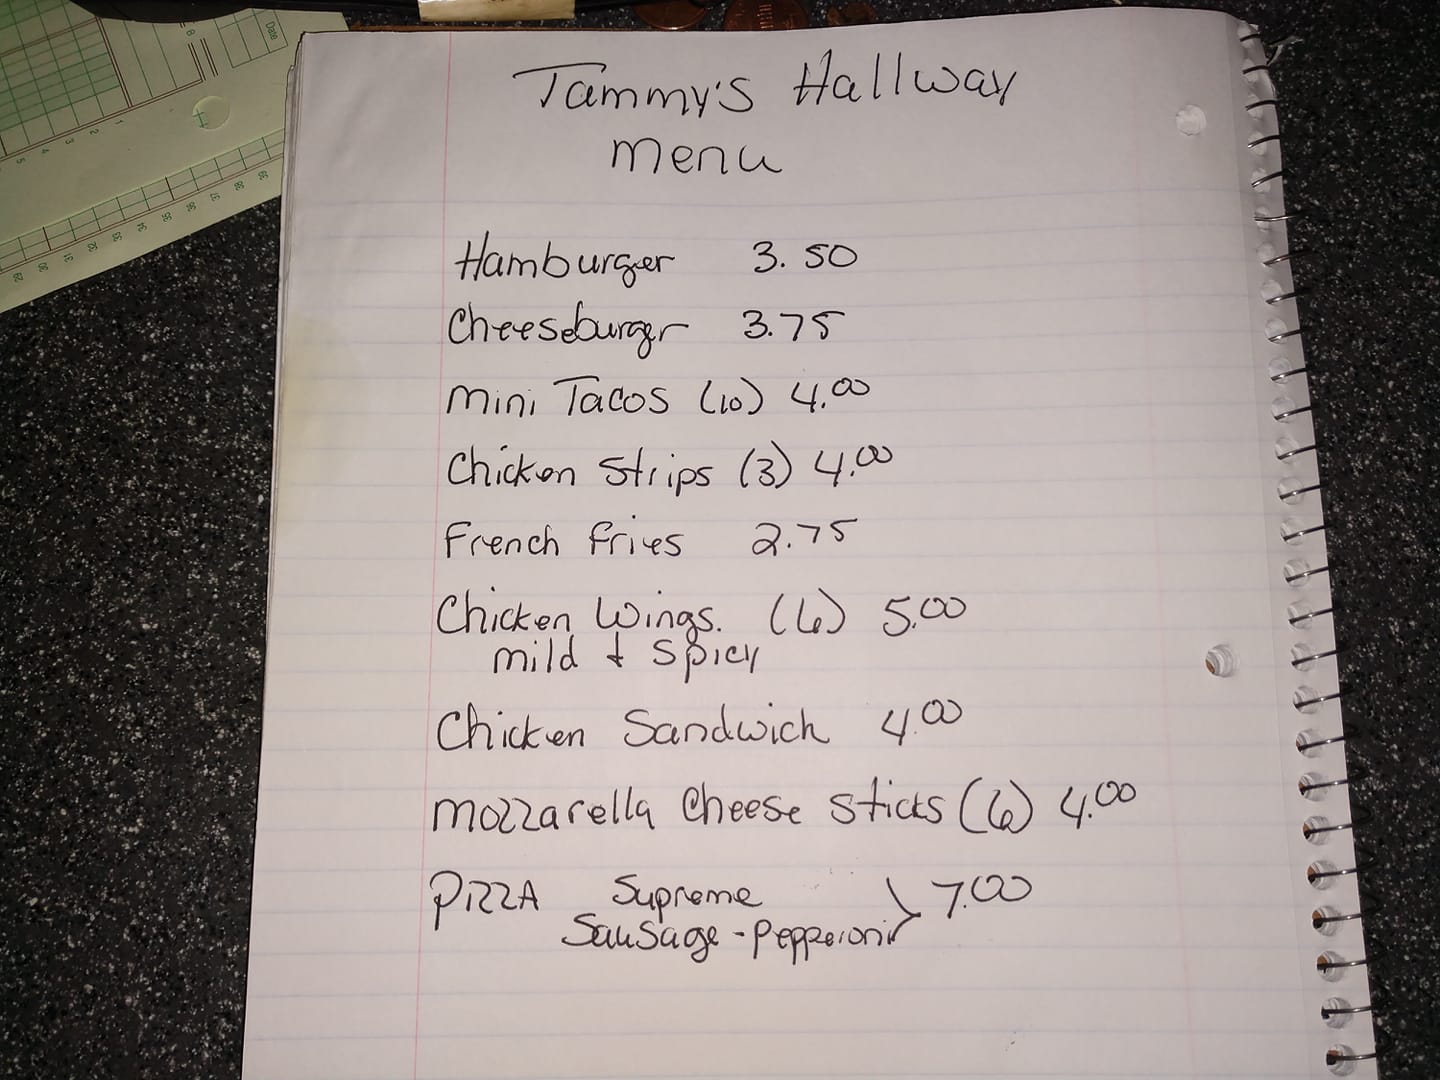 Tammy's Hallway
menu
Hamburger 3.50
Cheeseburger 3.75
Mini Tacos (10) 4.00
Chicken Strips (3) 4.00
French fries 2.75
Chicken Wings. (6) 5.00
mild + Spicy
Chicken Sandwich 4.00
Mozzarella Cheese Sticks (6) 4.00
PIZZA Supreme 7.00
Sausage - Pepperoni
Date